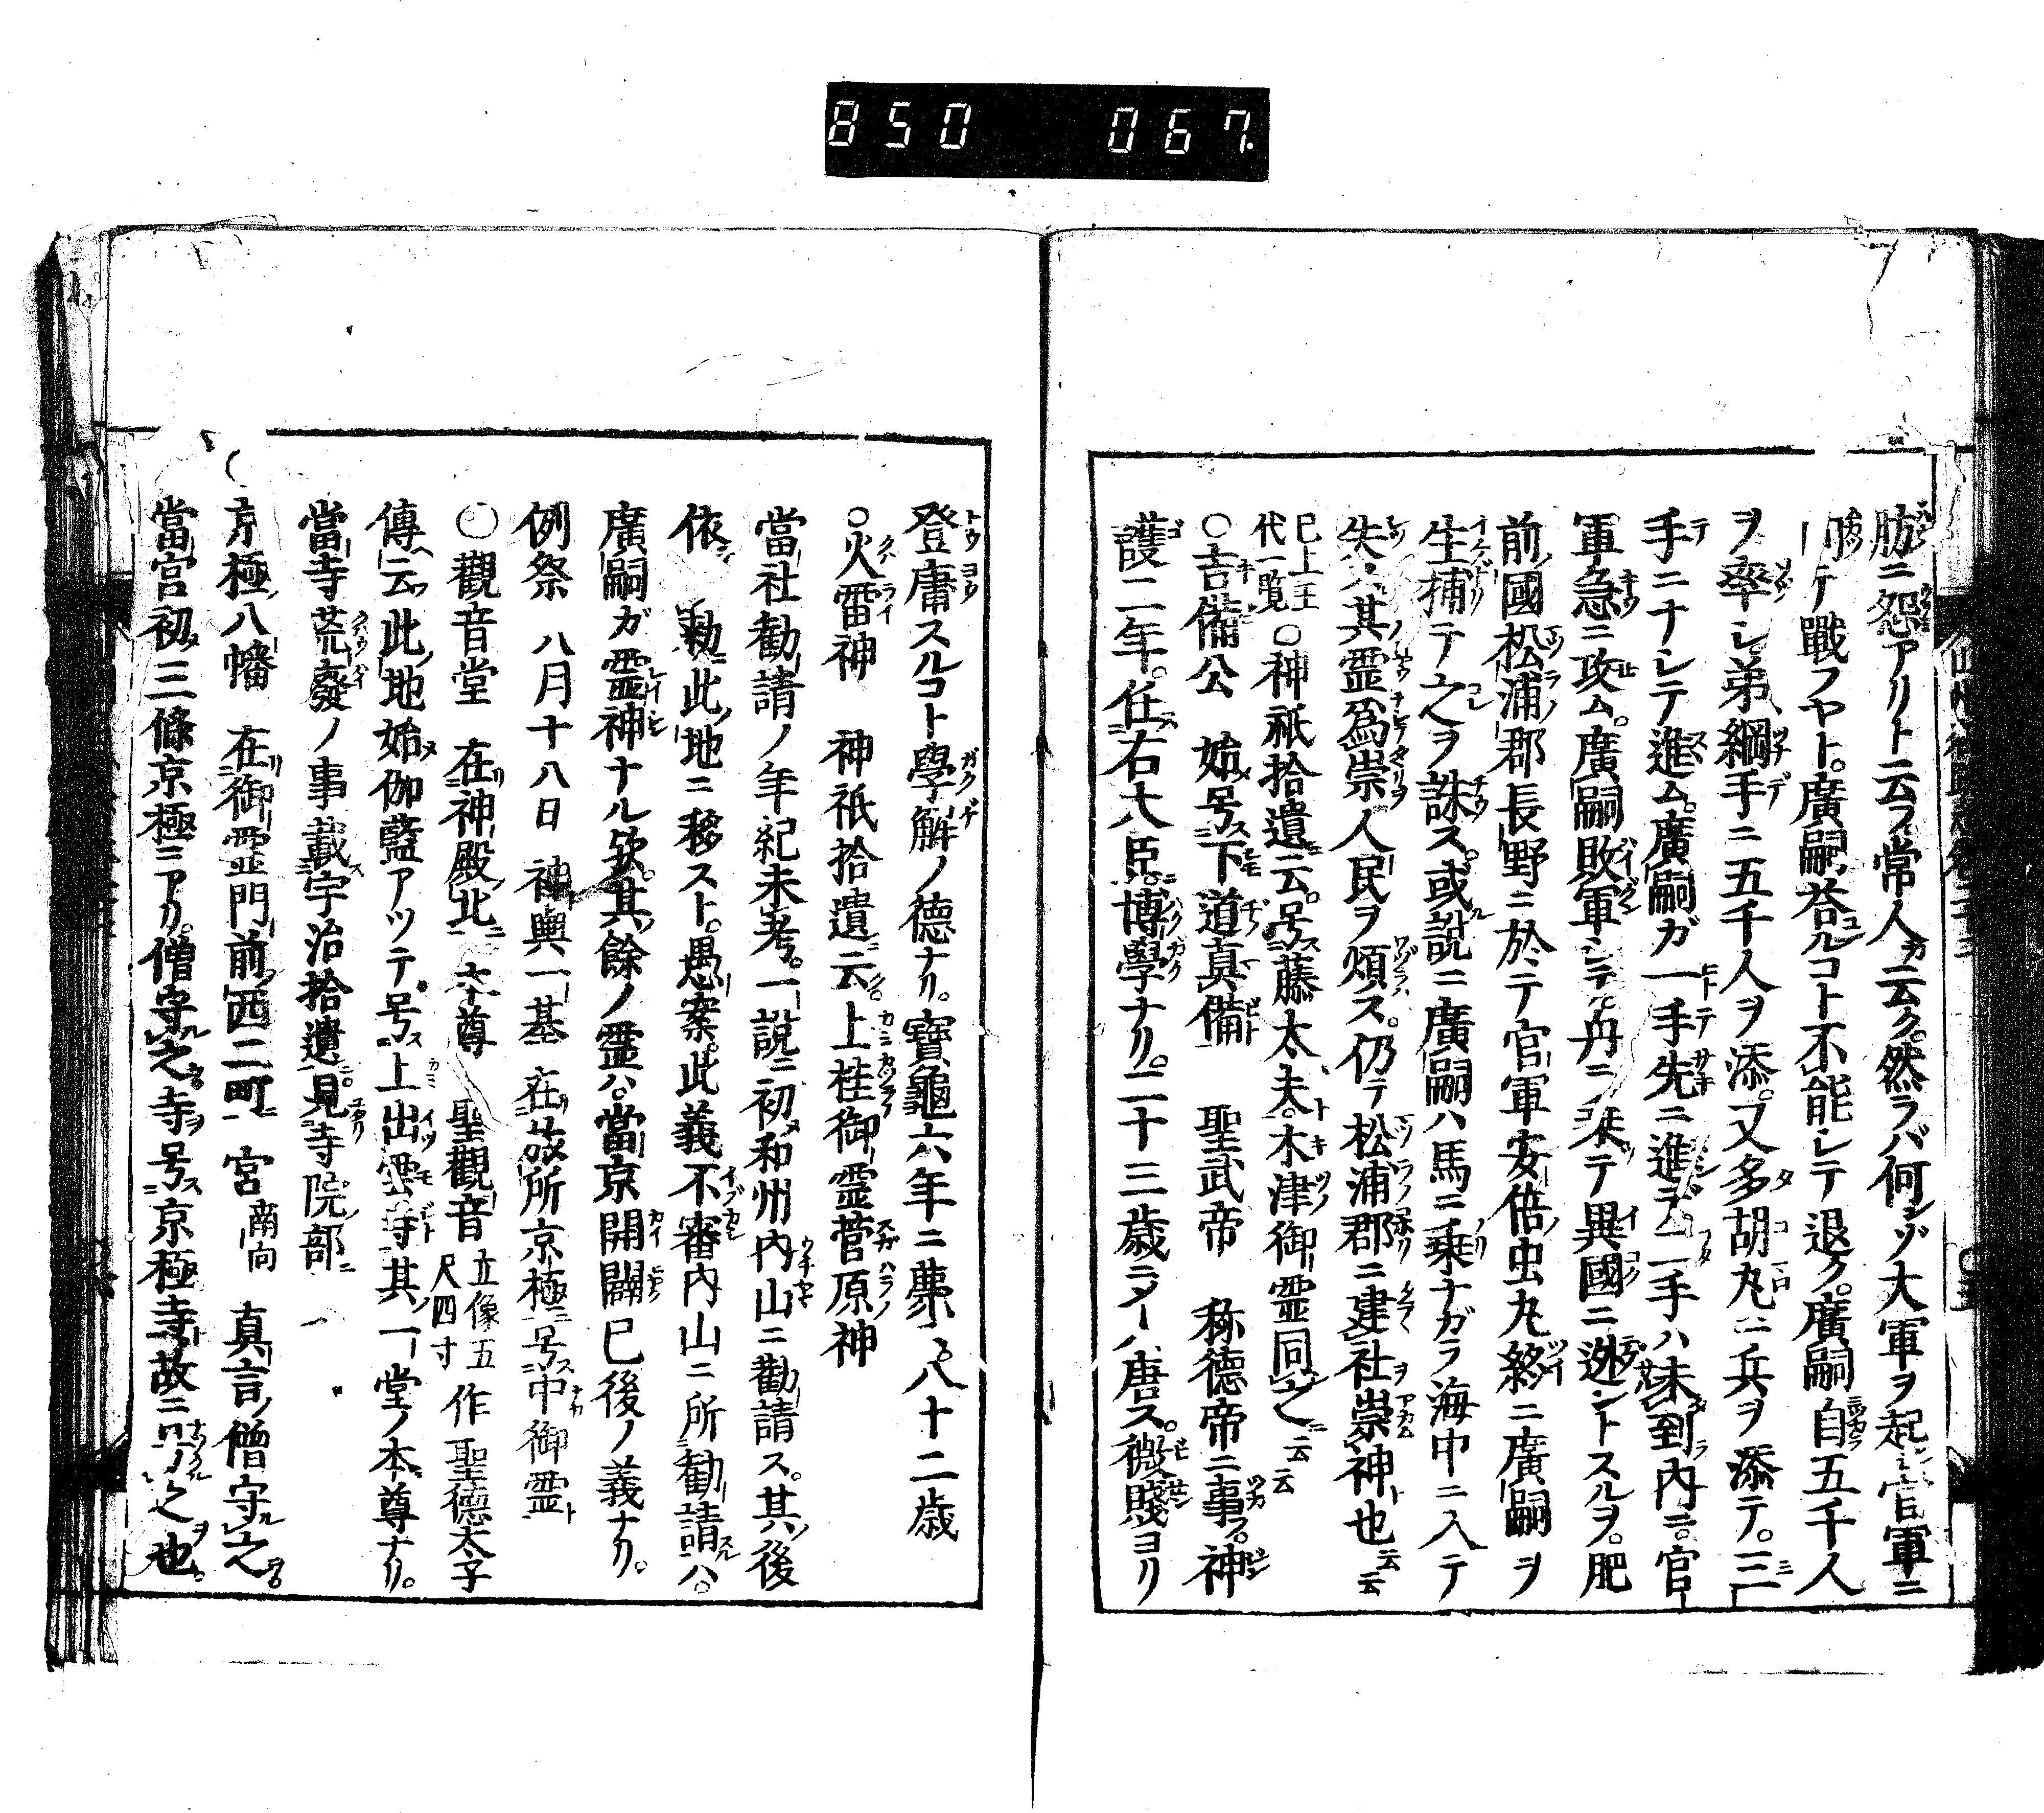 850 067.
肪ニ怨アリト云フ常人カ云ク。然ラバ何ンゾ大軍ヲ起シ官軍ニ
向テ戰フヤト。廣嗣答ルコト不能シテ退ク。廣嗣自五千人
ヲ率シ弟綱手ニ五千人ヲ添。又多胡丸ニ兵ヲ添テ。三
手ニナシテ進ム。廣嗣ガ一手先ニ進デ二手ハ未到内ニ。官
軍急ニ攻ム。廣嗣敗軍シテ舟ニ乗テ異國ニ迯ントスルヲ。肥
前國松浦郡長野ニ於テ官軍安倍虫丸終ニ廣嗣ヲ
生捕テ之ヲ誅ス。或説ニ廣嗣ハ馬ニ乗ナガラ海中ニ入テ
失。其霊爲崇人民ヲ煩ス。仍テ松浦郡ニ建社崇神也云云
已上王代一覧○神祇拾遺云。号藤太夫。木津御霊同之云云
○吉備公 始号下道真備 聖武帝 称德帝ニ事フ。神
護二年。任右大臣。博學ナリ。二十三歳ニメ入唐ス。微賤ヨリ
登庸スルコト學解ノ德ナリ。寶龜六年ニ薨八十二歳
○火雷神 神祇拾遺云。上桂御霊菅原神
當社勸請ノ年紀未考。一説ニ初和州内山ニ勸請ス。其後
依 勅此地ニ移スト。愚案。此義不審内山ニ所勸請ハ。
廣嗣ガ霊神ナル欤。其餘ノ霊ハ。當京開闢已後ノ義ナリ。
例祭 八月十八日 神輿一基 在旅所京極号中御霊
○觀音堂 在神殿北 本尊 聖觀音 立像五尺四寸 作聖德太子
傳云此地始伽藍アツテ号上出雲寺其一堂ノ本尊ナリ。
當寺荒廢ノ事載宇治拾遺見寺院部
京極八幡 在御霊門前西二町 宮南向 真言僧守之
當宮初三條京極ニアリ。僧守之寺号京極寺故ニ号之也。